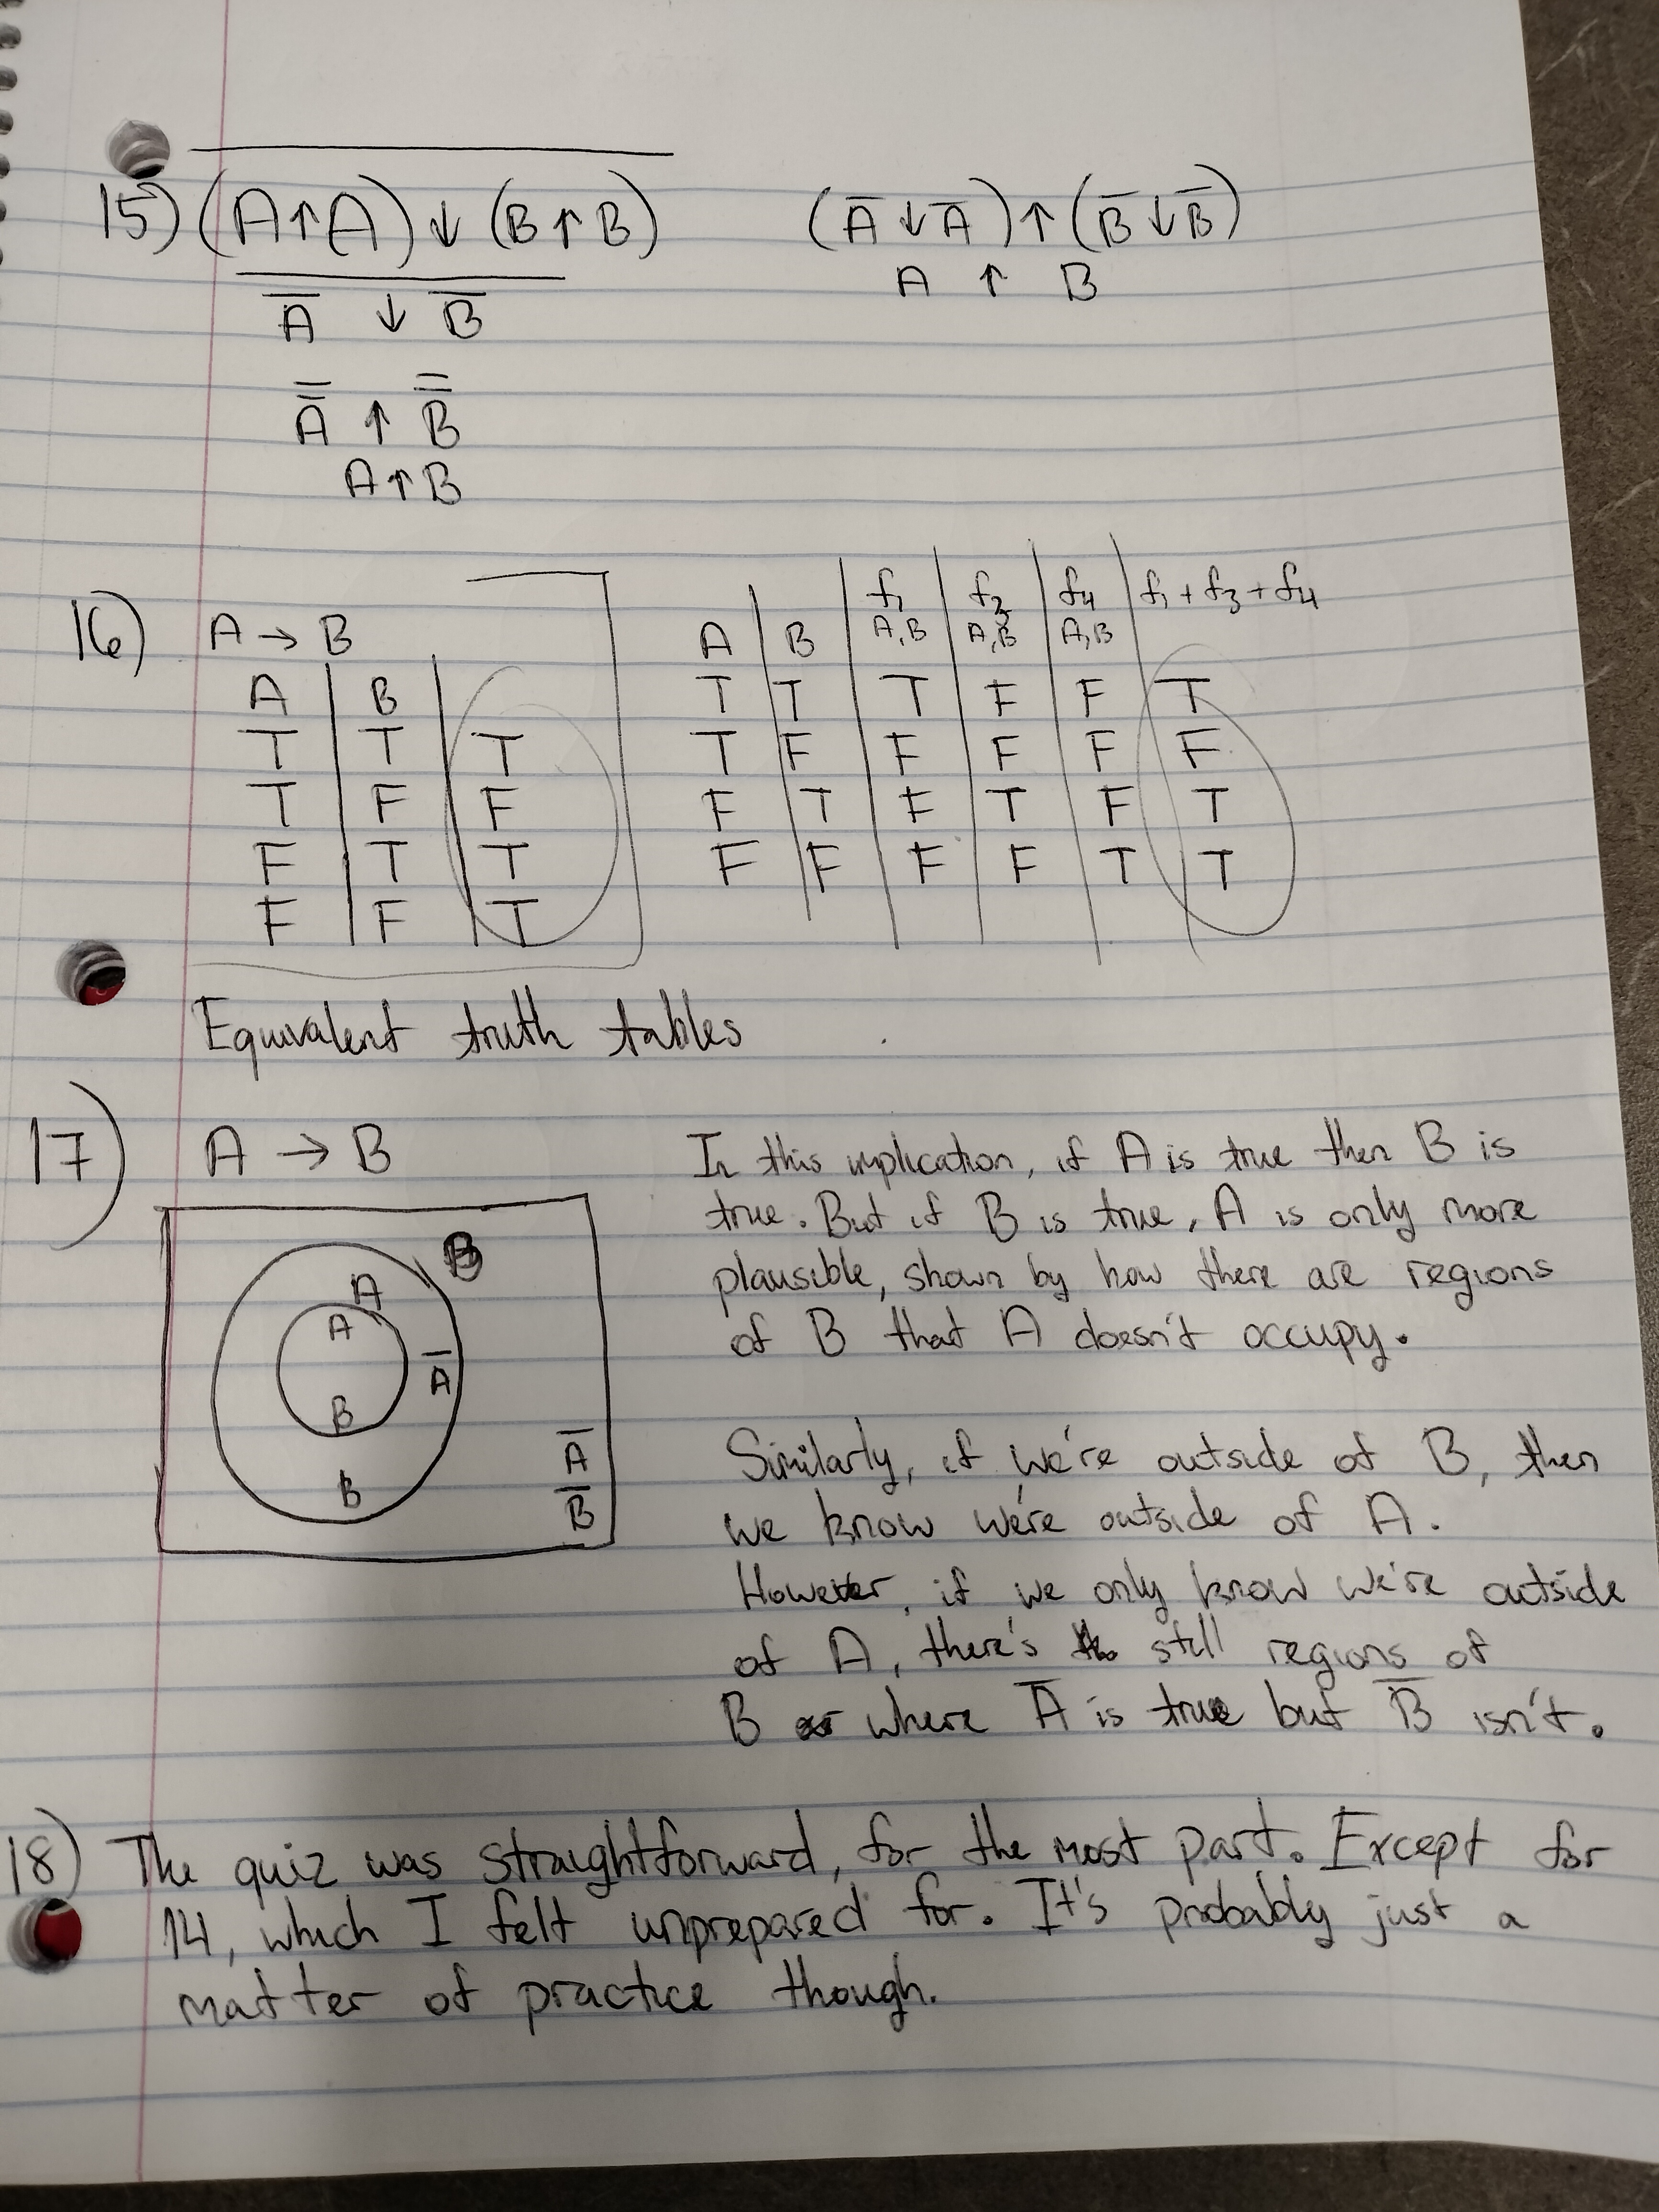 15) \overline{(A↑A)↓(B↑B)}    (A̅↓A̅)↑(B̅↓B̅)
\overline{A̅ ↓ B̅}    A ↑ B
A̿ ↑ B̿
A↑B
16) A → B
A | B |
T | T | T
T | F | F
F | T | T
F | F | T
A | B | f₁ A,B | f₃ A,B | f₄ A,B | f₁ + f₃ + f₄
T | T | T | F | F | T
T | F | F | F | F | F
F | T | F | T | F | T
F | F | F | F | T | T
Equivalent truth tables
17) A → B
A
A
B
B
A̅
A̅
B̅
In this implication, if A is true then B is
true. But if B is true, A is only more
plausible, shown by how there are regions
of B that A doesn't occupy.
Similarly, if we're outside of B, then
we know we're outside of A.
However, if we only know we're outside
of A, there's still regions of
B where A̅ is true but B̅ isn't.
18) The quiz was straightforward, for the most part. Except for
14, which I felt unprepared for. It's probably just a
matter of practice though.